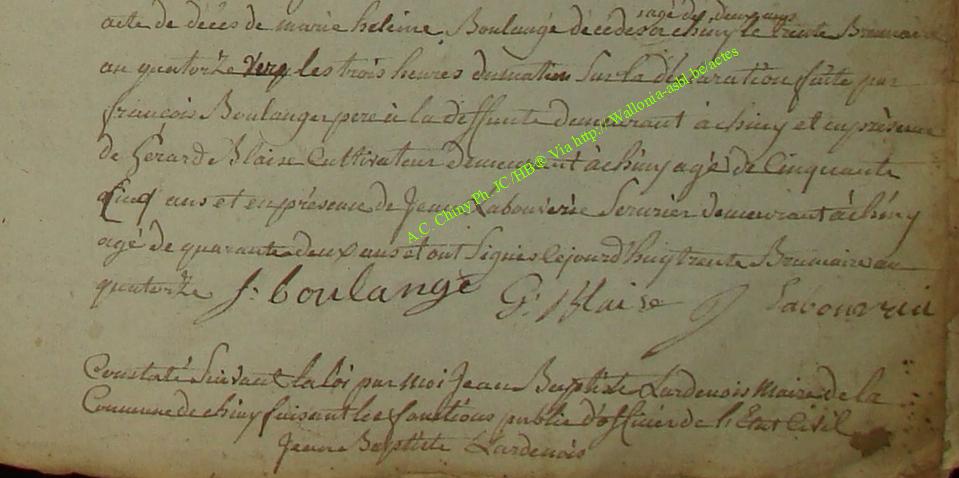 agé de deux ans
acte de décés de marie heleine Boulangé décédée a chiny le trente Brumaire
an quatorze vers les trois heures du matin Sur la déclaration faite par
françois Boulanger pere à la deffunte demeurant à chiny et en présence
de Gérard Blaise Cultivateur demeurant à chiny agé de Cinquante
Cinq ans et en présence de Jean Labouverie Serurier demeurant à chiny
agé de quarante deux ans et ont Signés cejourd'huy trente Brumaire an
quatorze f. boulangé G. Blaise J Labouverie
Constaté Suivant la loi par moi Jean Baptiste Lardenois Maire de la
Commune de chiny faisant les fonctions public d'officier de l'Etat Civil
Jean Baptiste Lardenois
A.C. Chiny Ph. JC /HB® Via http://Wallonia-asbl.be/actes